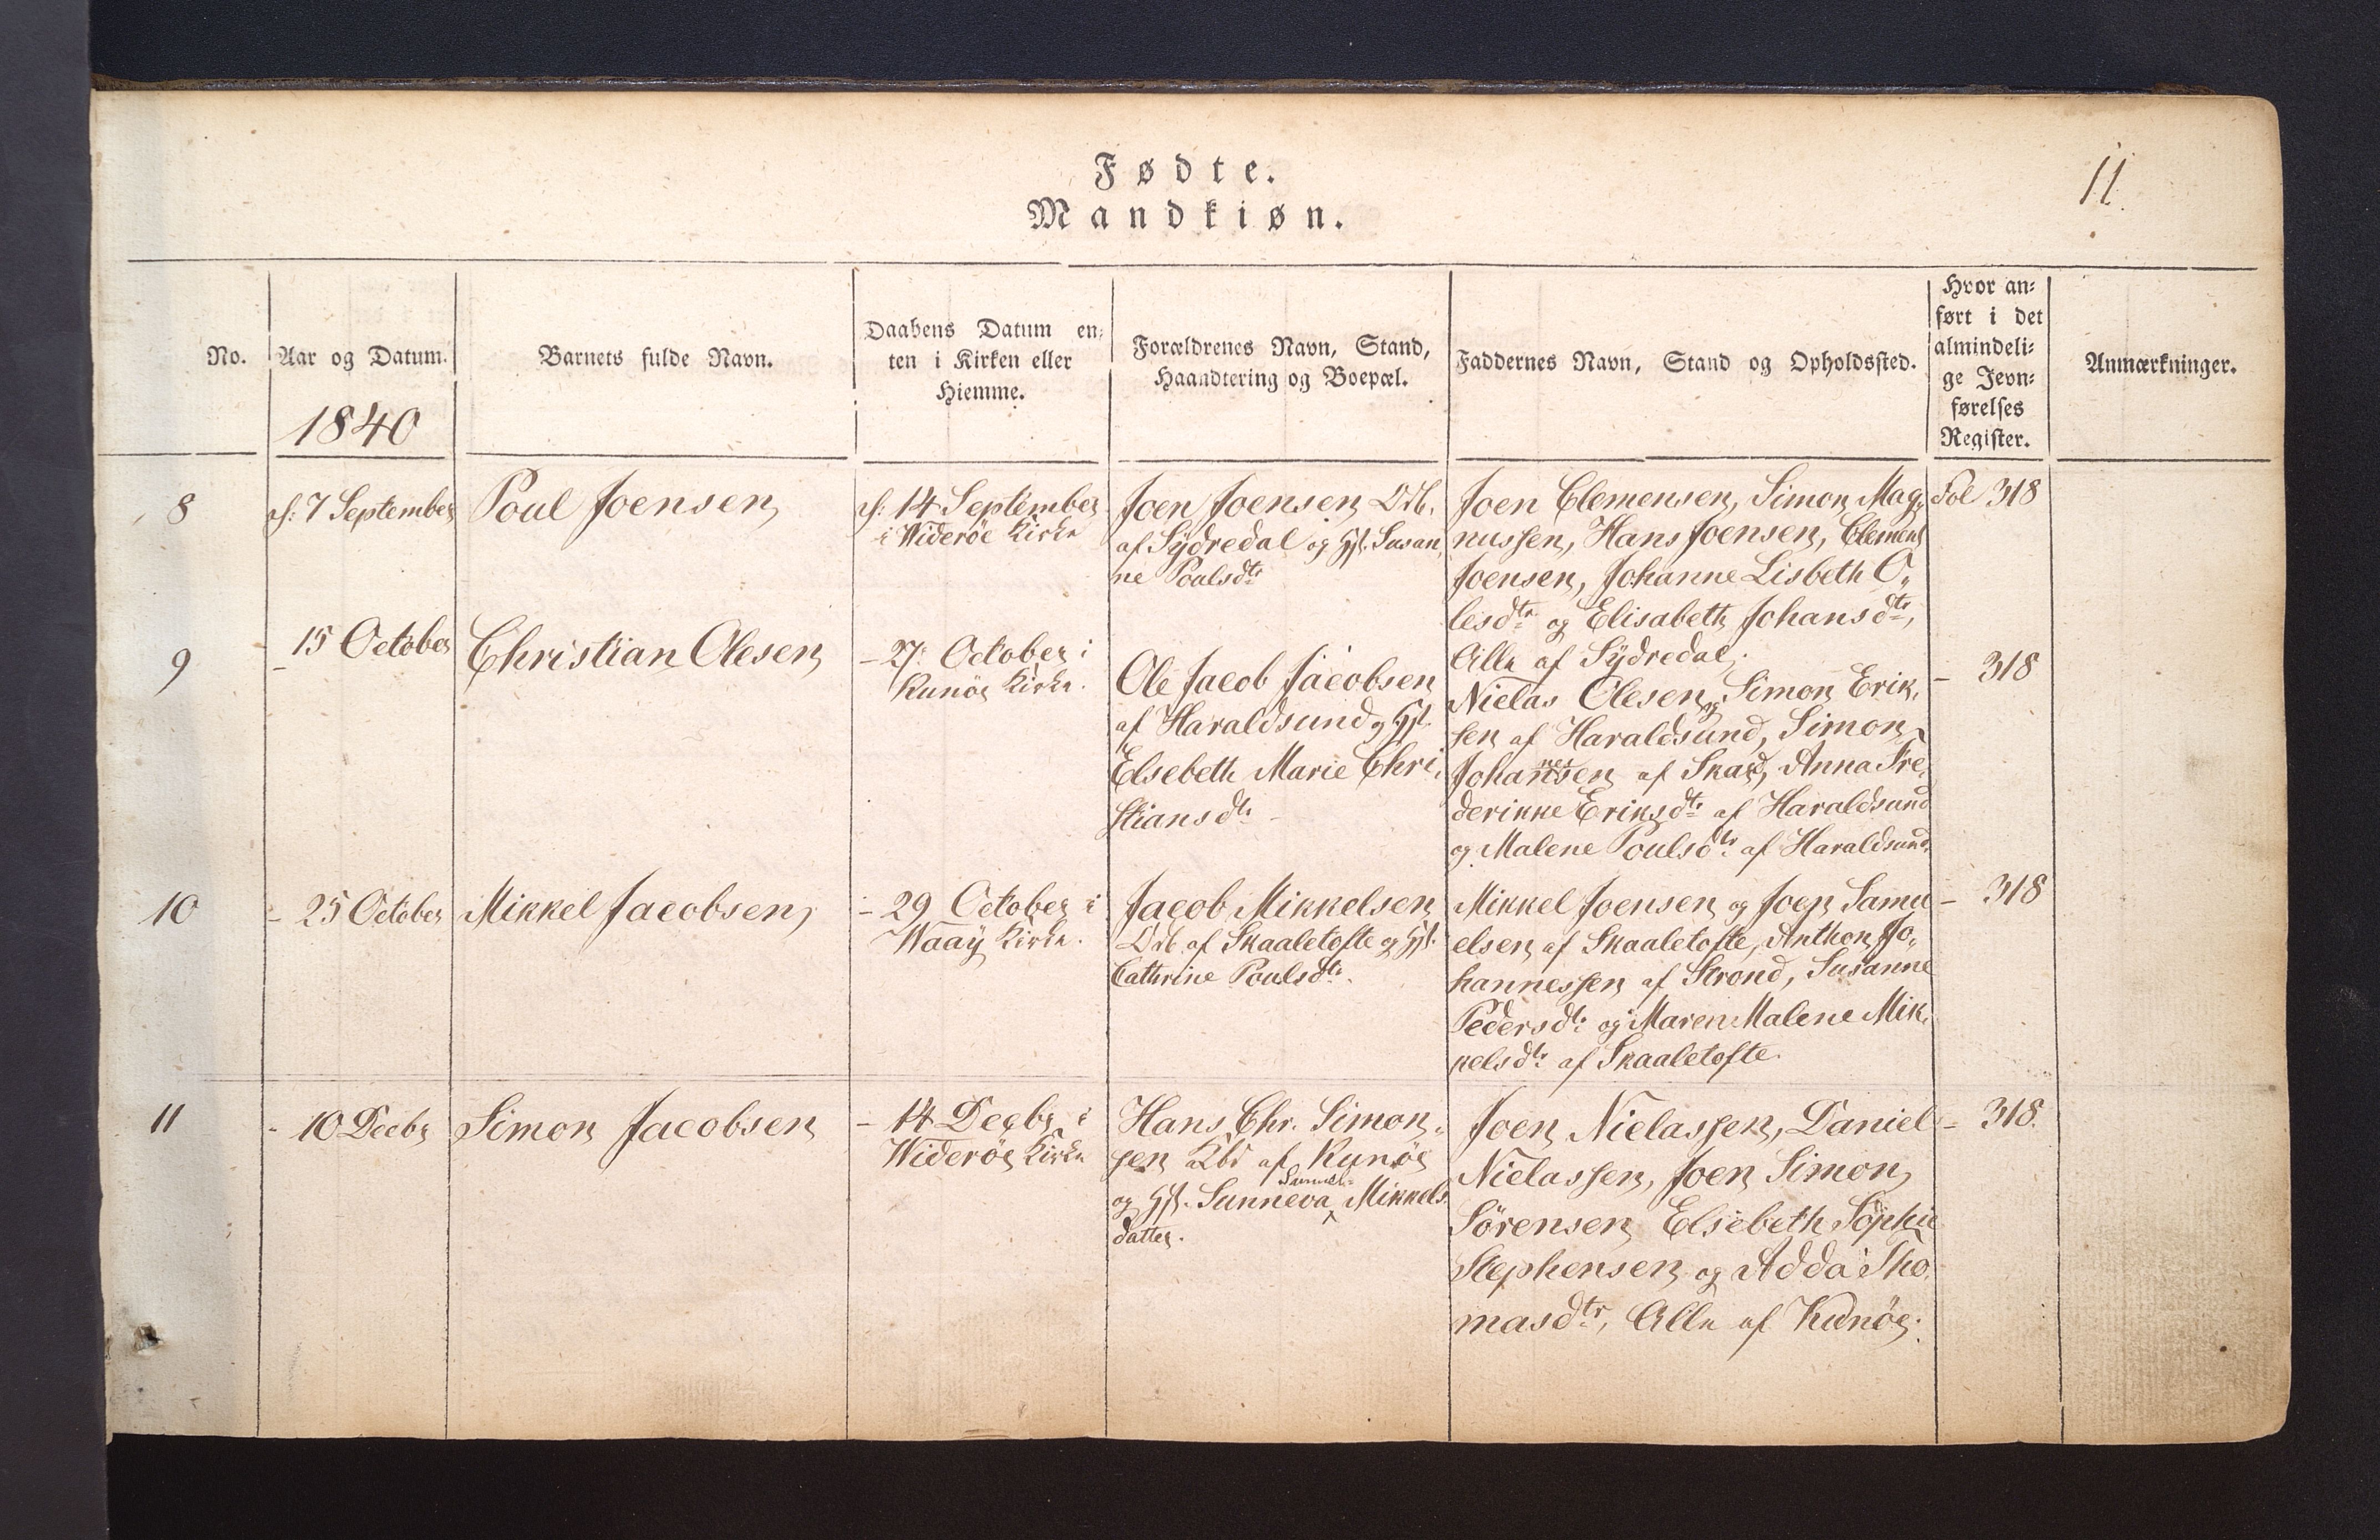 Fødte.
Mandkiøn.
11.
No.
Aar og Datum.
1840
Barnets fulde Navn.
Daabens Datum en-
ten i Kirken eller
Hiemme.
Forældrenes Navn, Stand,
Haandtering og Boepæl.
Faddernes Navn, Stand og Opholdssted.
Hvor an-
ført i det
almindeli-
ge Jevn-
førelses
Register.
Anmærkninger.
8
d: 7 September
Poul Joensen
d: 14 September
i Widerøe Kirke
Joen Joensen Odb.
af Sÿdredal og Hst. Susan,
ne Poulsdtr
Joen Clemensen, Simon Mag,,
nussen, Hans Joensen, Clemens
Joensen, Johanne Lisbeth O,,
lesdtr og Elisabeth Johansdtr,
Alle af Sÿdredal.
Fol 318
9
- 15 October
Christian Olesen
- 27. October i
Kunöe Kirke.
Ole Jacob Jacobsen
af Haraldsund og Hst.
Elsebeth Marie Chri,
stiansdtr
Nielas Olesen og Simon Erik,
sen af Haraldsund, Simon
Johannessen af Skard, Anna Fre,
derikke Eriksdtr af Haraldsund
og Malene Poulsdtr af Haraldsund.
- 318
10
- 25 October
Mikkel Jacobsen
- 29 October i
Waaÿ Kirke.
Jacob Mikkelsen
Odb. af Skaaletofte og Hst.
Cathrine Poulsdtr.
Mikkel Joensen og Joen Samu
elsen af Skaaletofte, Anthon Jo,,
hannessen af Strond, Susanne
Pedersdtr og Maren Malene Mik,
kelsdtr af Skaaletofte.
- 318
11
- 10 Decbr
Simon Jacobsen
- 14 Decbr i
Wideröe Kirke
Hans Chr. Simon,
sen Kbd af Kunöe
og Hst. Sunneva Mikkels
datter.
Joen Nielassen, Daniel
Nielassen, Joen Simon
Sörensen Elsebeth Sophie
Stephensen og Adda Tho,
masdtr, Alle af Kunöe.
- 318.